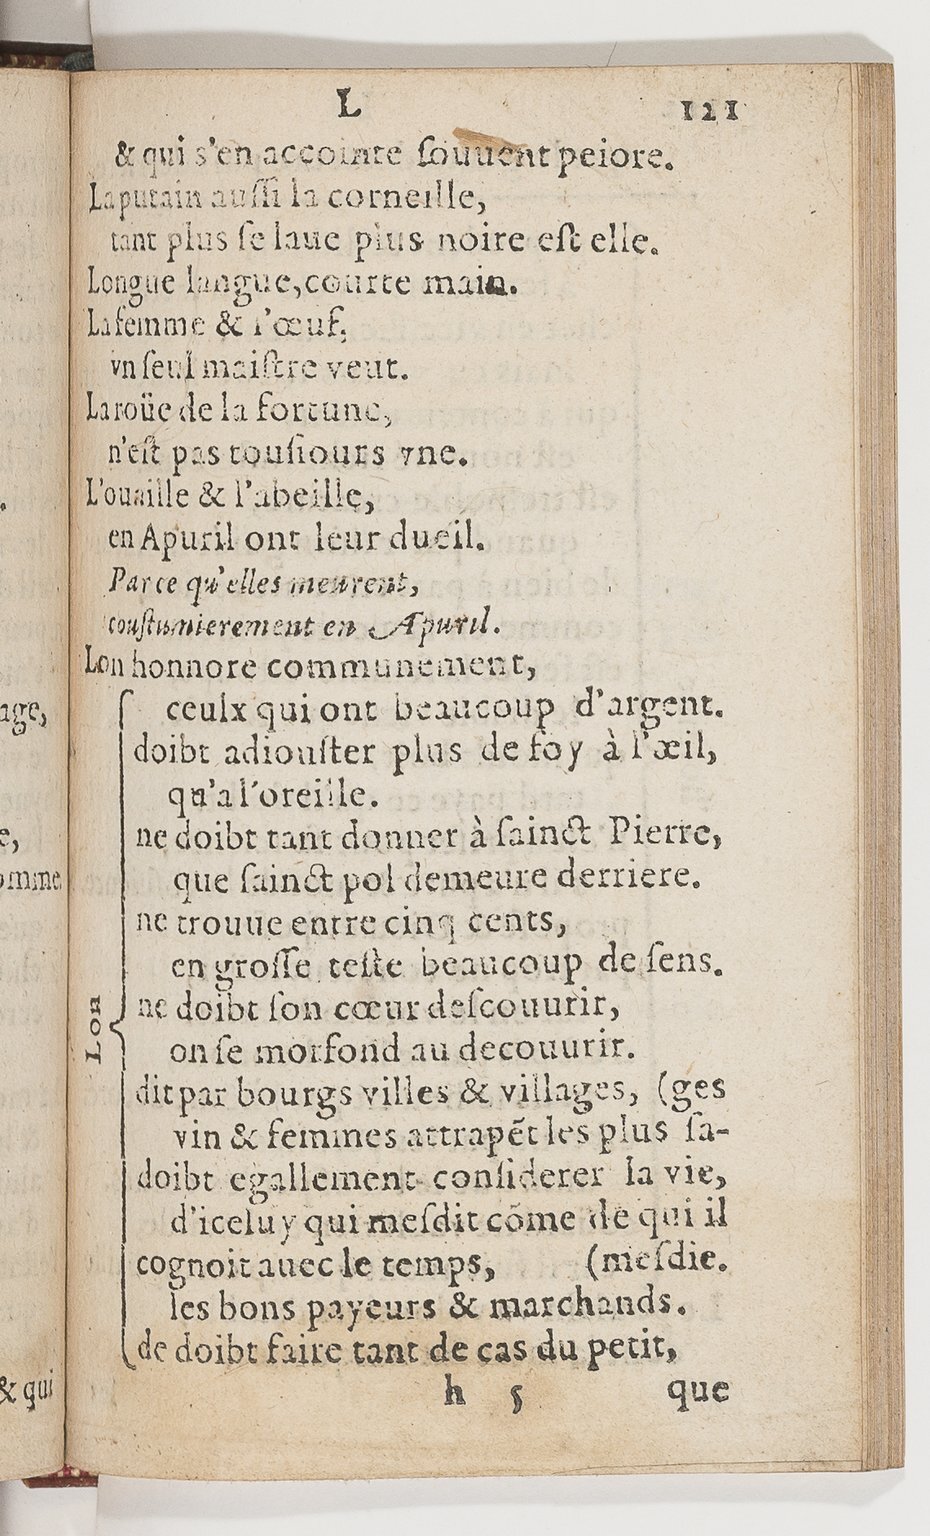 L 121
& qui s'en accointe ſouuent peiore.
La putain auſſi la corneille,
tant plus ſe laue plus noire eſt elle.
Longue langue, courte main.
La femme & l'œuf,
vn ſeul maiſtre veut.
La roüe de la fortune,
n'eſt pas touſiours vne.
L'ouaille & l'abeille,
en Apuril ont leur dueil.
Parce qu'elles meurent,
couſtumierement en Apuril.
Lon honnore communement,
ceulx qui ont beaucoup d'argent.
doibt adiouſter plus de foy à l'œil,
qu'a l'oreille.
ne doibt tant donner à ſainct Pierre,
que ſainct pol demeure derriere.
ne trouue entre cinq cents,
en groſſe teſte beaucoup de ſens.
Lon
ne doibt ſon cœur deſcouurir,
on ſe morfond au decouurir.
dit par bourgs villes & villages, (ges
vin & femmes attrapẽt les plus ſa-
doibt egallement conſiderer la vie,
d'iceluy qui meſdit cõme de qui il
cognoit auec le temps, (meſdie.
les bons payeurs & marchands.
de doibt faire tant de cas du petit,
h 5 que
age,
e,
omme
& qui